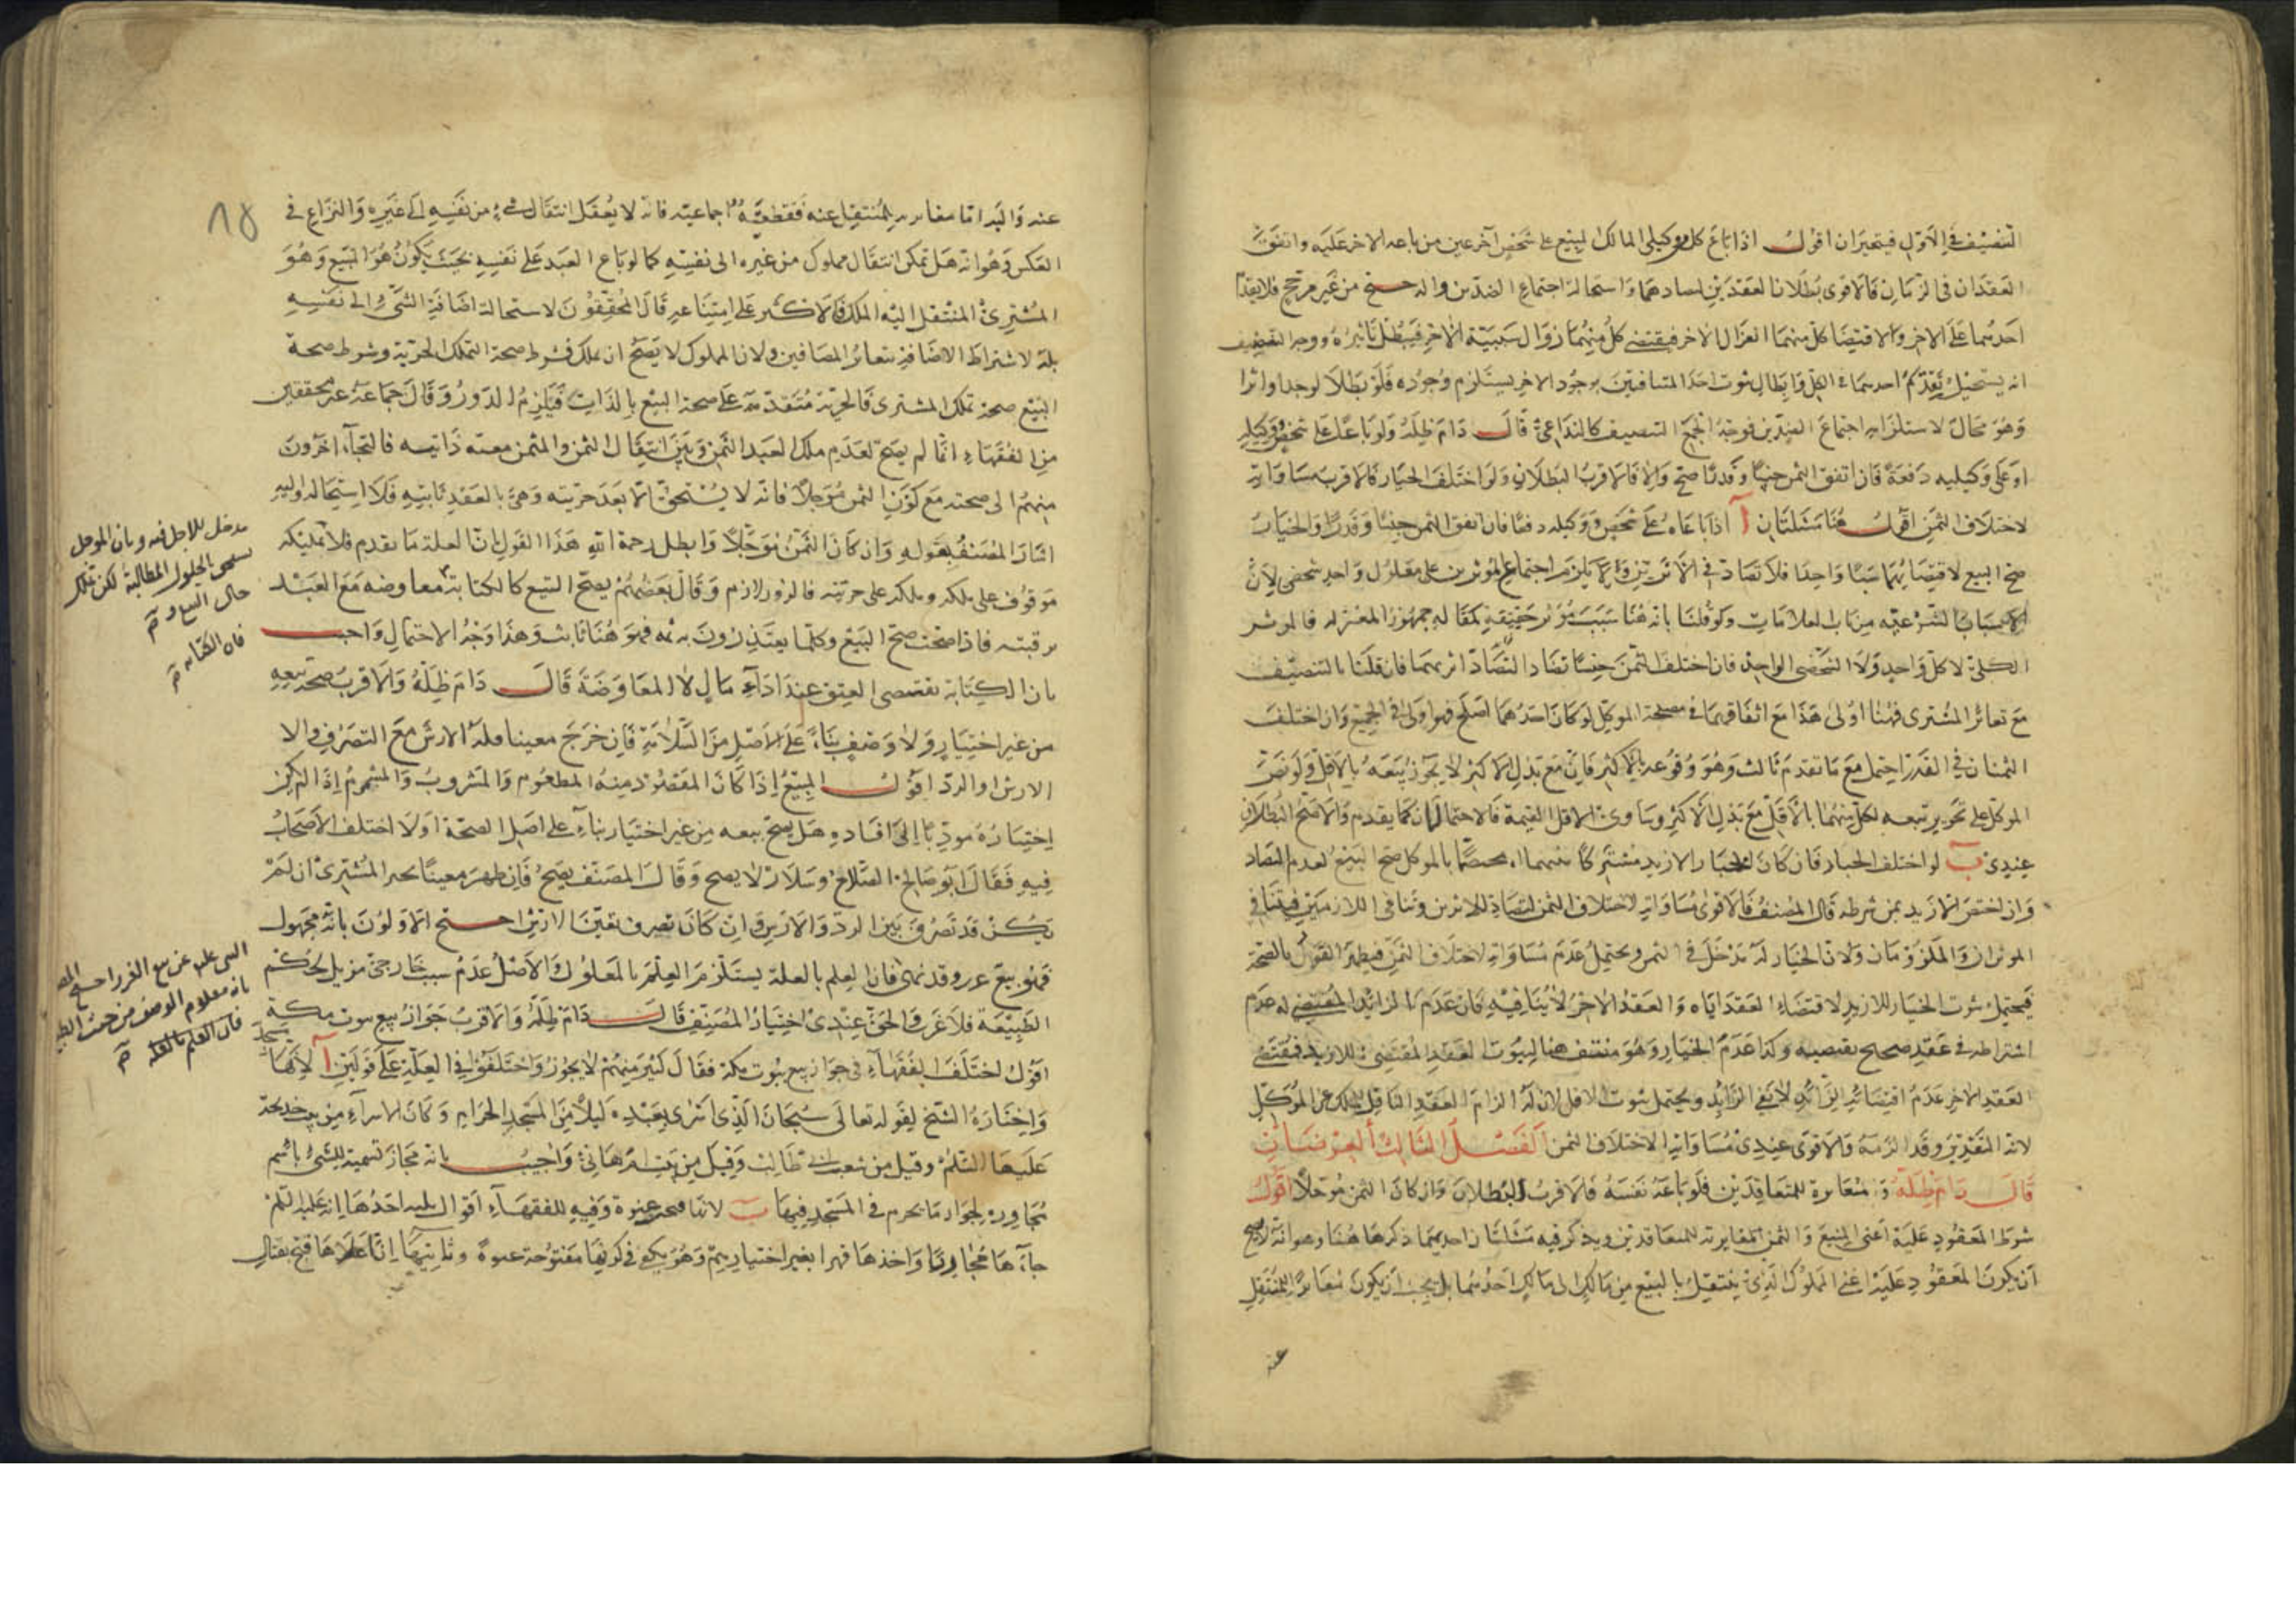 التنصيف في الاول فيتعين ان اقول اذا باع كل من وكيلي المالك المبيع على شخص آخر عين من باعه الاخر عليه واتفق
العقدان في الزمان فالاقوى بطلان العقدين لتضادهما واستحالة اجتماع الضدين والترجيح من غير مرجح فلا يقدم
احدهما على الاخر ولاقتضا كل منهما انعزال الاخر فيقتضي كل منهما زوال سببية الاخر فيبطل تاثيره ووجه التنصيف
انه يستحيل تقدم احدهما في الكل وابطال ثبوت احد المتنافيين بوجود الاخر يستلزم وجوده فلو بطلا لوجدا واثرا
وهو محال لاستلزامه اجتماع الضدين فوجه الجمع التنصيف كالتداعي قال دام ظله ولو باعا على شخص ووكيله
او على وكيليه دفعة فان اتفق الثمن جنسا وقدرا صح والا فالاقرب البطلان ولو اختلف الخيار فالاقرب مساواته
لاختلاف الثمن اقول هنا مسئلتان آ اذا باعاه على شخص ووكيله دفعة فان اتفق الثمن جنسا وقدرا والخيار
صح البيع لاقتضائهما سببا واحدا فلا تضاد في الاثرين ولا يلزم اجتماع المؤثرين على معلول واحد شخصي لان
الاسباب الشرعية من باب العلامات ولو قلنا بانه هنا سبب مؤثر حقيقة كما قاله جمهور المعتزلة فالموثر
الكلي لا كل واحد ولا الشخصي الواحد فان اختلف الثمن جنسا تضادا لتضاد اثريهما فان قلنا بالتنصيف
مع تغاير المشتري فهنا اولى هذا مع اتفاقهما في مصلحة الموكل لو كان احدهما اصلح فهو اولى في الجميع وان اختلف
الثمنان في القدر احتمل مع ما تقدم ثالث وهو وقوعه بالاكثر فان مع بذل الاكثر لا يجوز بيعه بالاقل ولو نص
الموكل على تجويز بيعه لكل منهما بالاقل مع بذل الاكثر وساوى الاقل القيمة فالاحتمالان كما يقدم والاصح البطلان
عندي ب لو اختلف الخيار فان كان الخيار الازيد مشتركا بينهما او مختصا بالموكل صح البيع لعدم التضاد
وان اختص الازيد بمن شرطه قال المصنف فالاقوى مساواته لاختلاف الثمن لتضاد الاثرين وتنافي اللازمين فيتنافى
الموثران والملزومان ولان الخيار له مدخل في الثمن ويحتمل عدم مساواته لاختلاف الثمن فيظهر القول بالصحة
فيحتمل ثبوت الخيار للازيد لاقتضاء العقد اياه والعقد الاخر لا ينافيه فان عدم الزائد المقتضي له عدم
اشتراطه في عقد صحيح يقتضيه وكذا عدم الخيار وهو منتف هنا لثبوت العقد المقتضي للازيد فيقتضى
العقد الاخر عدم اقتضائه الزائد لا نفي الزائد ويحتمل ثبوت الاقل لان له الزام العقد الناقل للملك عن الموكل
لانه التقدير وقد الزمه والاقوى عندي مساواته لاختلاف الثمن الفصل الثالث العوضان
قال دام ظله و المغايرة للمتعاقدين فلو باعه نفسه فالاقرب البطلان وان كان الثمن مؤجلا اقول
شرط المعقود عليه اعني المبيع والثمن المغايرة للمتعاقدين ويذكر فيه مسئلتان احديهما ذكرها هنا وهو انه لا يصح
ان يكون المعقود عليه اعني المملوك الذي ينتقل بالبيع من مالك الى مالك احدهما بل يجب ان يكون مغايرا للمنتقل
عنه
١٥
عنه والبدا ما مغايرته للمنتقل عنه فقطعية اجماعية فانه لا يعقل انتقال شيء من نفسه الى غيره والنزاع في
العكس وهو انه هل يمكن انتقال مملوك من غيره الى نفسه كما لو باع العبد على نفسه بحيث يكون هو المبيع وهو
المشتري المنتقل اليه الملك فالاكثر على امتناعه قال المحققون لاستحالة اضافة الشيء الى نفسه
بل لاشتراط الاضافة بتغاير المضافين ولان المملوك لا يصح ان يملك فشرط صحة التملك الحرية وشرط صحة
البيع صحة تملك المشتري فالحرية متقدمة على صحة البيع بالذات فيلزم الدور وقال جماعة غير محققين
من الفقهاء انما لم يصح لعدم ملك العبد الثمن وبين انتقال الثمن والمثمن معية ذاتية فالتجأ اخرون
منهم الى صحته مع كون الثمن مؤجلا فانه لا يستحق الا بعد حريته وهي بالعقد ثابتة فلا استحالة واليه
اشار المصنف بقوله وان كان الثمن مؤجلا وابطل رحمة الله هذا القول بان العلة ما تقدم فلا تمليكه
موقوف على ملكه وملكه على حريته فالدور لازم وقال بعضهم يصح البيع كالكتابة معاوضة مع العبد
برقبته فاذا صحت صح البيع وكلما يعتذرون به ثمه فهو هنا ثابت وهذا وجه الاحتمال واجيب
بان الكتابة تقتضي العتق عند اداء مال لا المعاوضة قال دام ظله والاقرب صحة بيعه
من غير اختيار ولا وصف بناء على الاصل من السلامة فان خرج معيبا فله الارش مع التصرف والا
الارش او الرد اقول المبيع اذا كان المقصود منه المطعوم والمشروب والمشموم اذا لم يكن
اختباره موديا الى افساده هل يصح بيعه من غير اختبار بناء على اصل الصحة او لا اختلف الاصحاب
فيه فقال ابو صالح الصلاح وسلار لا يصح وقال المصنف يصح فان ظهر معيبا تخير المشتري ان لم
يكن قد تصرف بين الرد والارش وان كان تصرف تعين الارش احتج الاولون بانه مجهول
فهو بيع غرر وقد نهى فان العلم بالعلة يستلزم العلم بالمعلول والاصل عدم سبب خارجي مزيل لحكم
الطبيعة فلا غرر والحق عندي اختيار المصنف قال دام ظله والاقرب جواز بيع بيوت مكة
اقول اختلف الفقهاء في جواز بيع بيوت مكة فقال كثير منهم لا يجوز واختلفوا في العلة على قولين آ لانها مسجد
واختاره الشيخ لقوله تعالى سبحان الذي اسرى بعبده ليلا من المسجد الحرام وكان الاسراء من بيت خديجة
عليها السلم وقيل من شعب ابي طالب وقيل من بيت ام هاني واجيب بانه مجاز تسمية للشيء باسم
مجاوره لجواز ما يحرم في المسجد فيها ب لانها فتحت عنوة وفيه للفقهاء اقوال ثلثة احدها انه عليه السلم
جاءها مجاورا واخذها قهرا بغير اختيارهم وهو يكفي في كونها مفتوحة عنوة وثانيها ان اعلاها فتح بقتال
مدخل للاجل فيه وبان الموجل
يستحق بالحلول المطالبة لكن تملك
حال البيع وثم
فان الكتابة ثم
النبي عليه عن بيع الغرر احتج المصنف
بانه معلوم الوصف من حيث الطبيعة
فان العلم بالعلة ثم